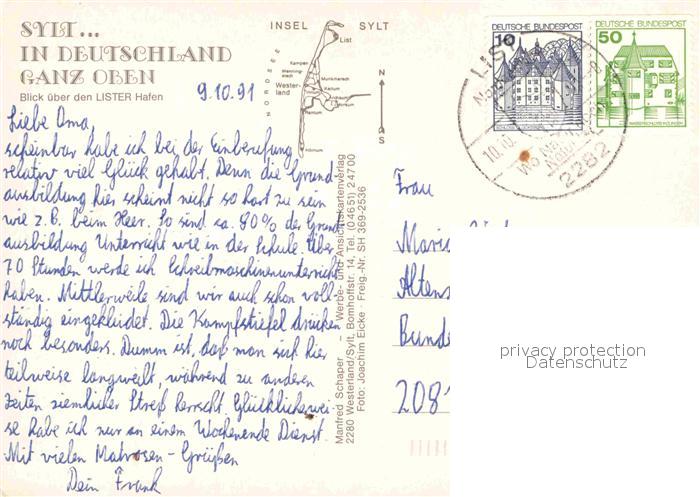 SYLT...
IN DEUTSCHLAND
GANZ OBEN
Blick über den LISTER Hafen
INSEL SYLT
NORDSEE
List
Kampen
Westerland
Munkmarsch
Keitum
Hörnum
N
S
9.10.91
Liebe Oma,
scheinbar habe ich bei der Einberufung
relativ viel Glück gehabt. Denn die Grund-
ausbildung hier scheint nicht so hart zu sein
wie z.B. beim Heer. So sind ca. 80% der Grund
ausbildung Unterricht wie in der Schule. Über
70 Stunden werde ich Schreibmaschinenunterricht
haben. Mittlerweile sind wir auch schon voll-
ständig eingekleidet. Die Kampfstiefel drücken
noch besonders. Dumm ist, daß man sich hier
teilweise langweilt, während zu anderen
Zeiten ziemlicher Streß herrscht. Glücklicherwei-
se habe ich nur an einem Wochenende Dienst.
Mit vielen Matrosen-Grüßen
Dein Frank
Manfred Schaper – Werbe- und Ansichtskartenverlag
2280 Westerland/Sylt, Bomhoffstr. 14, Tel. (04651) 24700
Foto: Joachim Eicke · Freig.-Nr. SH 369-2536
DEUTSCHE BUNDESPOST
10
DEUTSCHE BUNDESPOST
50
2282
Frau
Altens
Bunde
208
privacy protection
Datenschutz